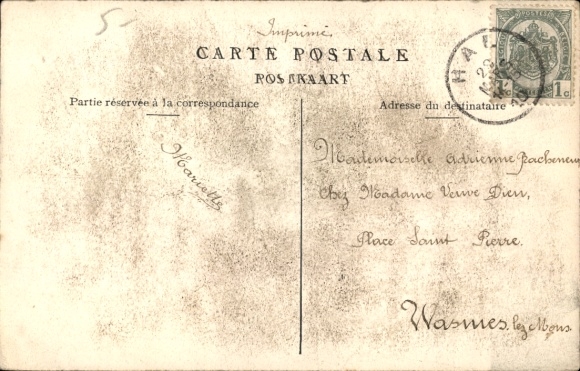 5-
Imprimé.
CARTE POSTALE
POSTKAART
Partie réservée à la correspondance
Adresse du destinataire
HAL
1c
Mariette
Mademoiselle Adrienne
Chez Madame Veuve Dieu,
Place Saint Pierre.
Wasmes lez Mons.